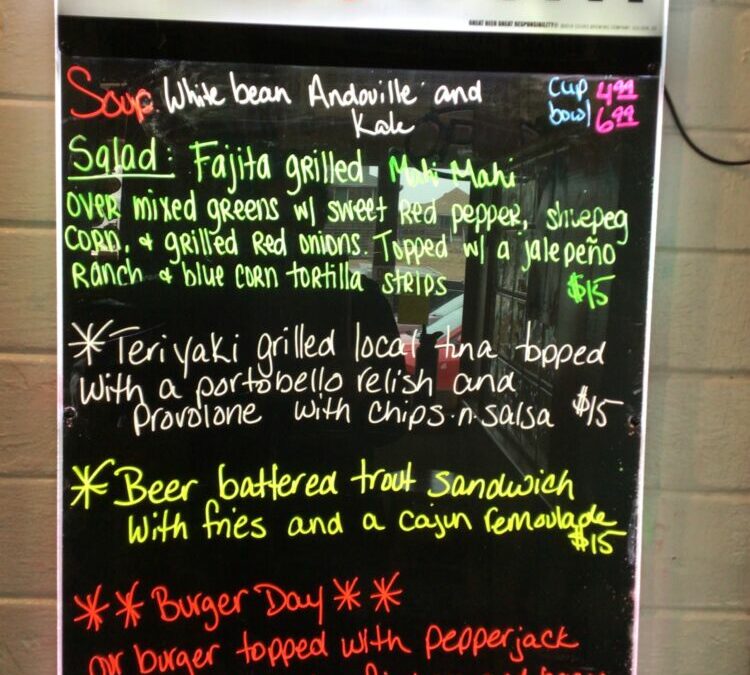 GREAT BEER GREAT RESPONSIBILITY®
Soup White bean Andouille and Kale
cup 4.99
bowl 6.99
Salad: Fajita grilled Mahi Mahi
over mixed greens w/ sweet Red pepper, shoepeg
corn, & grilled Red onions. Topped w/ a jalepeño
Ranch & blue corn tortilla strips $15
*Teriyaki grilled local tuna topped
with a portobello relish and
Provolone with chips-n-salsa $15
*Beer battered trout sandwich
with fries and a cajun remoulade
$15
** Burger Day **
our burger topped with pepperjack